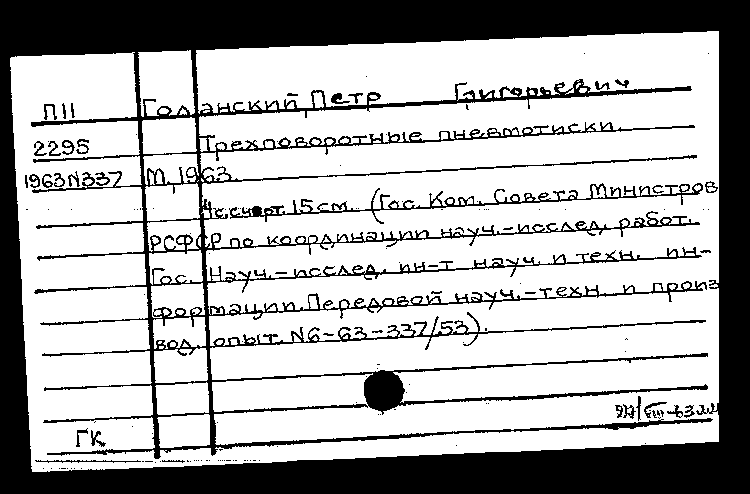 П11 Голанский, Петр Григорьевич
2295 Трехповоротные пневмотиски.
1963N337 М., 1963.
4с.счерт. 15см. (Гос. Ком. Совета Министров
РСФСР по координации науч.-исслед. работ.
Гос. Науч.-исслед. ин-т науч. и техн. ин-
формации. Передовой науч.-техн. и произ
вод. опыт. N6-63-337/53).
ГК